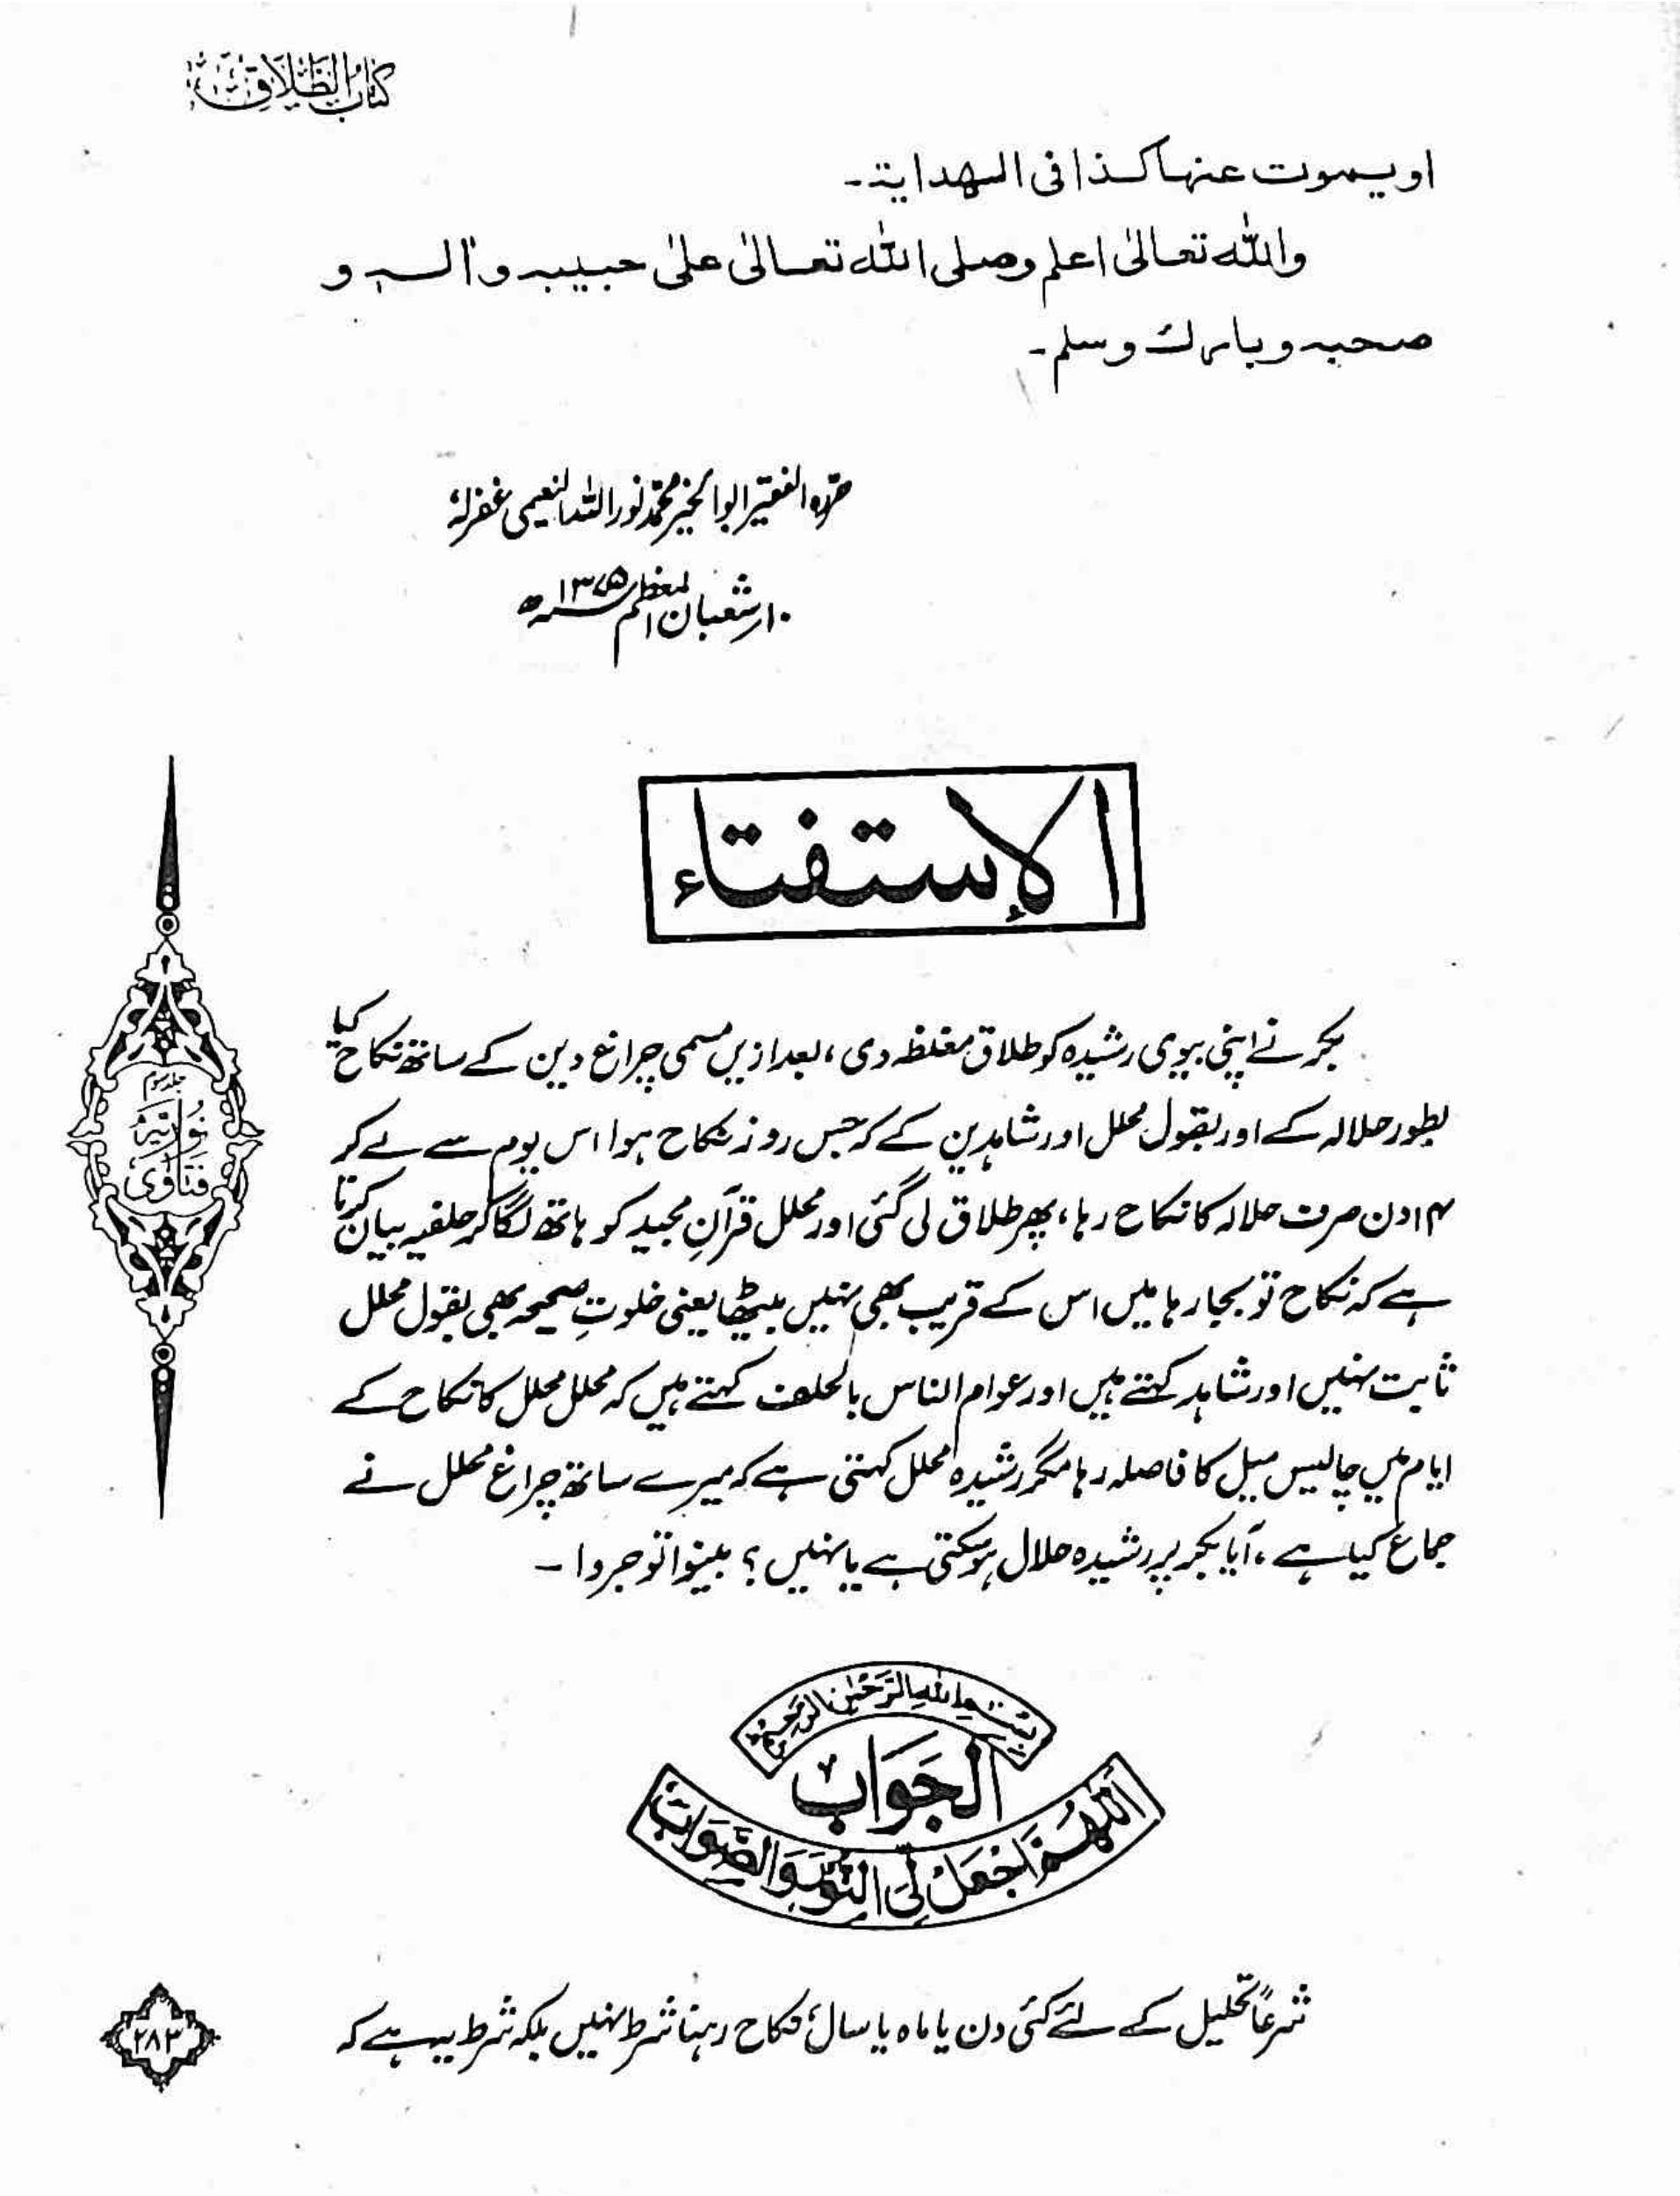 كتاب الطلاق
او يموت عنها كذا فى الهداية۔
والله تعالىٰ اعلم وصلى الله تعالىٰ علىٰ حبيبه واٰله و
صحبه وبارك وسلم۔
حرّہ الفقیر ابوالخیر محمد نور اللہ النعیمی غفرلہٗ
۱۰ شعبان المعظم ۱۳۷۵ھ
الإستفتاء
بکر نے اپنی بیوی رشیدہ کو طلاق مغلظہ دی، بعد ازیں مسمی چراغ دین کے ساتھ نکاح کیا
بطور حلالہ کے اور بقول محلل اور شاہدین کے کہ جس روز نکاح ہوا اس یوم سے لے کر
۱۴ دن صرف حلالہ کا نکاح رہا، پھر طلاق لی گئی اور محلل قرآنِ مجید کو ہاتھ لگا کر حلفیہ بیان کرتا
ہے کہ نکاح تو بجا رہا میں اس کے قریب بھی نہیں بیٹھا یعنی خلوتِ صحیحہ بھی بقول محلل
ثابت نہیں اور شاہد کہتے ہیں اور عوام الناس بالحلف کہتے ہیں کہ محلل محلل کا نکاح کے
ایام میں چالیس میل کا فاصلہ رہا مگر رشیدہ محلل کہتی ہے کہ میرے ساتھ چراغ محلل نے
جماع کیا ہے، آیا بکر پر رشیدہ حلال ہو سکتی ہے یا نہیں؟ بینوا توجروا ۔
جلد سوم
نوریہ
فتاوی
بسم الله الرحمن الرحيم
الجواب
اللهم اجعل لي النور والصواب
شرعاً تحلیل کے لئے کئی دن یا ماہ یا سال نکاح رہنا شرط نہیں بلکہ شرط یہ ہے کہ
۲۸۳